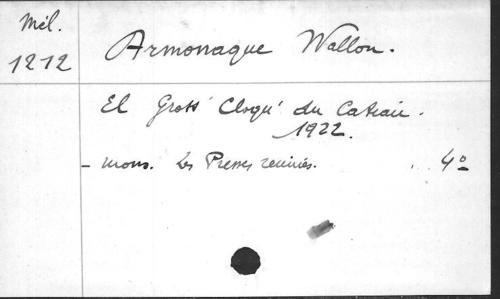 Mél.
1212
Armonaque Wallon.
El Gross' Cloqu' du Catiau.
1922.
- Mons. Les Presses réunies. . 4º